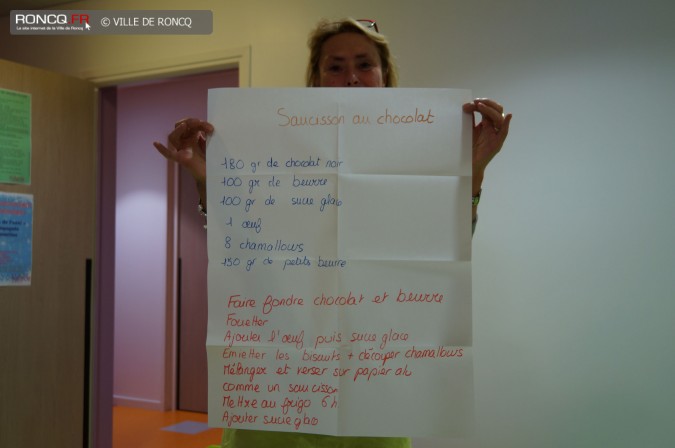 RONCQ.FR
Le site internet de la Ville de Roncq
© VILLE DE RONCQ
Saucisson au chocolat
180 gr de chocolat noir
100 gr de beurre
100 gr de sucre glace
1 œuf
8 chamallows
150 gr de petits beurre
Faire fondre chocolat et beurre
Fouetter
Ajouter l'œuf puis sucre glace
Emietter les biscuits + découper chamallows
Mélanger et verser sur papier alu
comme un saucisson
Mettre au frigo 6 h
Ajouter sucre glace